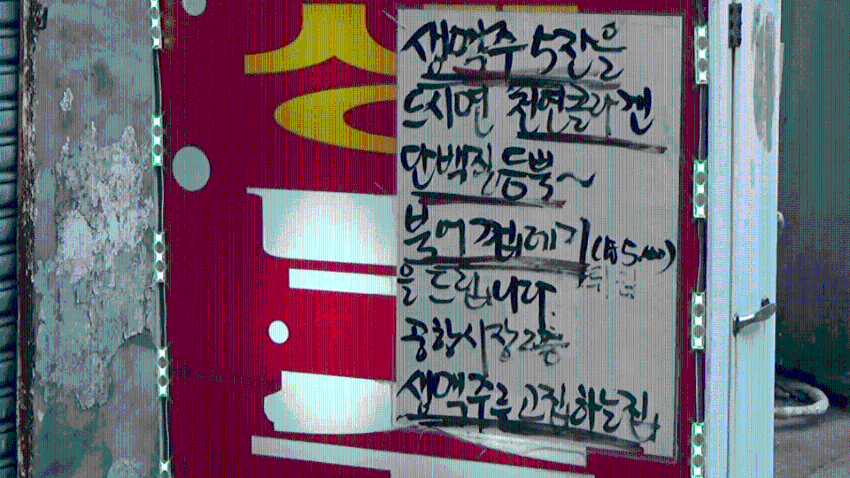 샙맥주 5잔을
드시면 천연콜라겐
단백질 듬뿍~
북어껍데기 (싯가5,000)
을 드립니다.
공항시장2층
샙맥주를 고집하는집